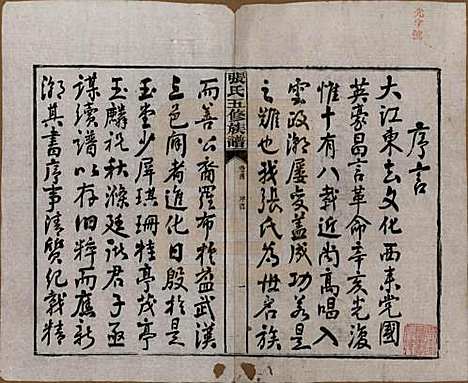 序言
大江東去文化西來党國
英豪昌言革命辛亥光復
惟十有八載近尚高唱入
雲政潮屢變蓋成功若是
之難也我張氏為世名族
張氏五修族譜
卷首
序言
一
而善公裔羅布於益武漢
三邑間者進化日殷於是
玉堂少屏琪珊桂亭茂亭
玉麟礼秋滌廷諸君子亟
謀續譜以存旧粹而應新
潮其書序事清賢紀載精
光字號